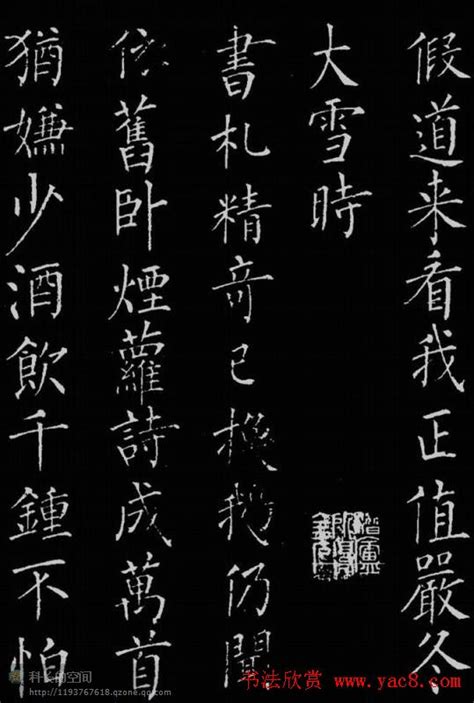 假道来看我正值嚴冬
大雪時
書札精奇已換鵝仍聞
依舊卧煙蘿詩成萬首
猶嫌少酒飲千鍾不怕
科长的空间
http://1193767618.qzone.qq.com
书法欣赏 www.yac8.com